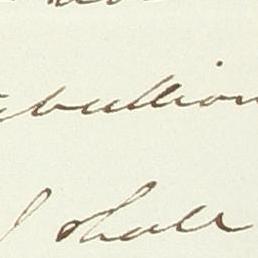 ebullion
I shall